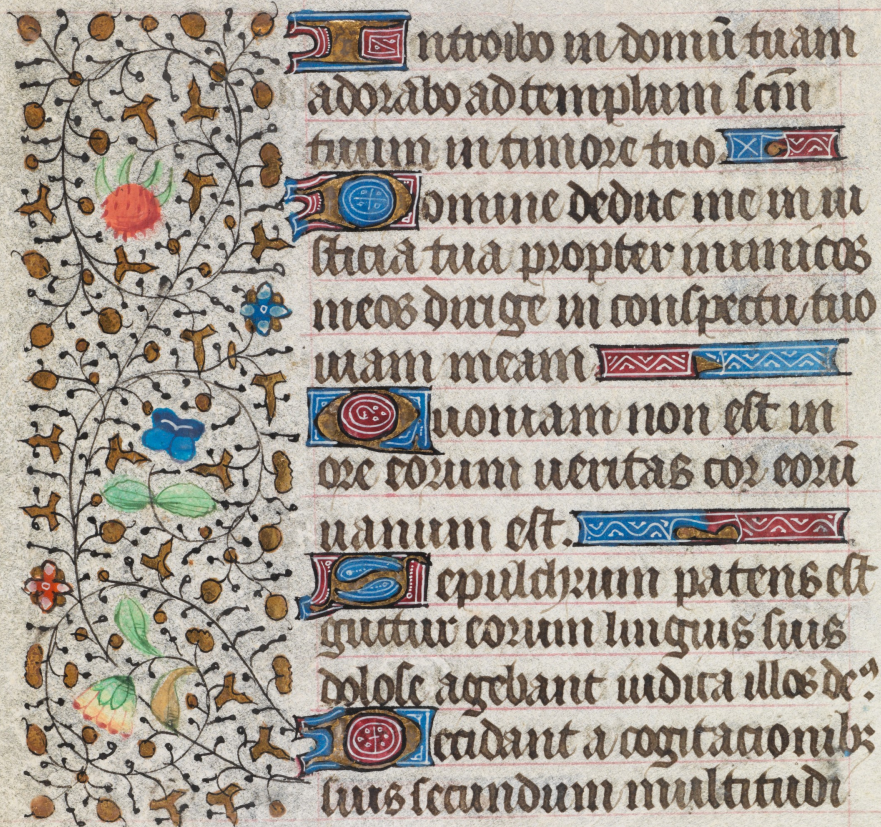 Introibo in domū tuam
adorabo ad templum scm̄
tuum in timore tuo
Domine deduc me in iu
sticia tua propter inimicos
meos dirige in conspectu tuo
uiam meam
Quoniam non est in
ore eorum ueritas cor eorū
uanum est.
Sepulchrum patens est
guttur eorum linguis suis
dolose agebant iudica illos deꝰ.
Decidant a cogitacionibꝫ
suis secundum multitudi